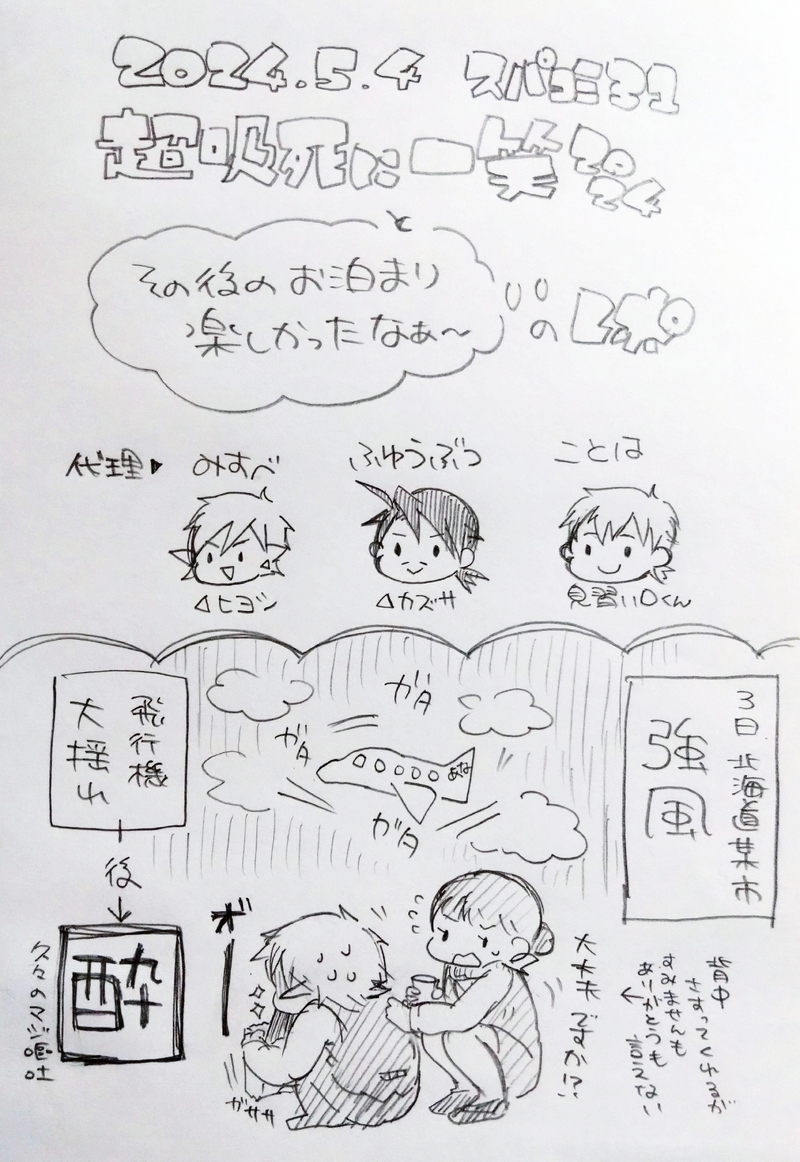 2024.5.4 スパコミ31
超吸死に一笑2024
と
その後のお泊まり
楽しかったなぁ〜
のレポ
代理▶
みすべ
ふゆうぶつ
ことは
△ヒヨシ
△カズサ
見習いDくん
3日 北海道某市
強風
ガタ
ガタ
ガタ
あな
飛行機
大揺れ
後
↓
酔
久々のマジ嘔吐
オ゛ー
ガササ
大丈夫ですか!?
背中
さすってくれるが
すみませんも
ありがとうも
言えない